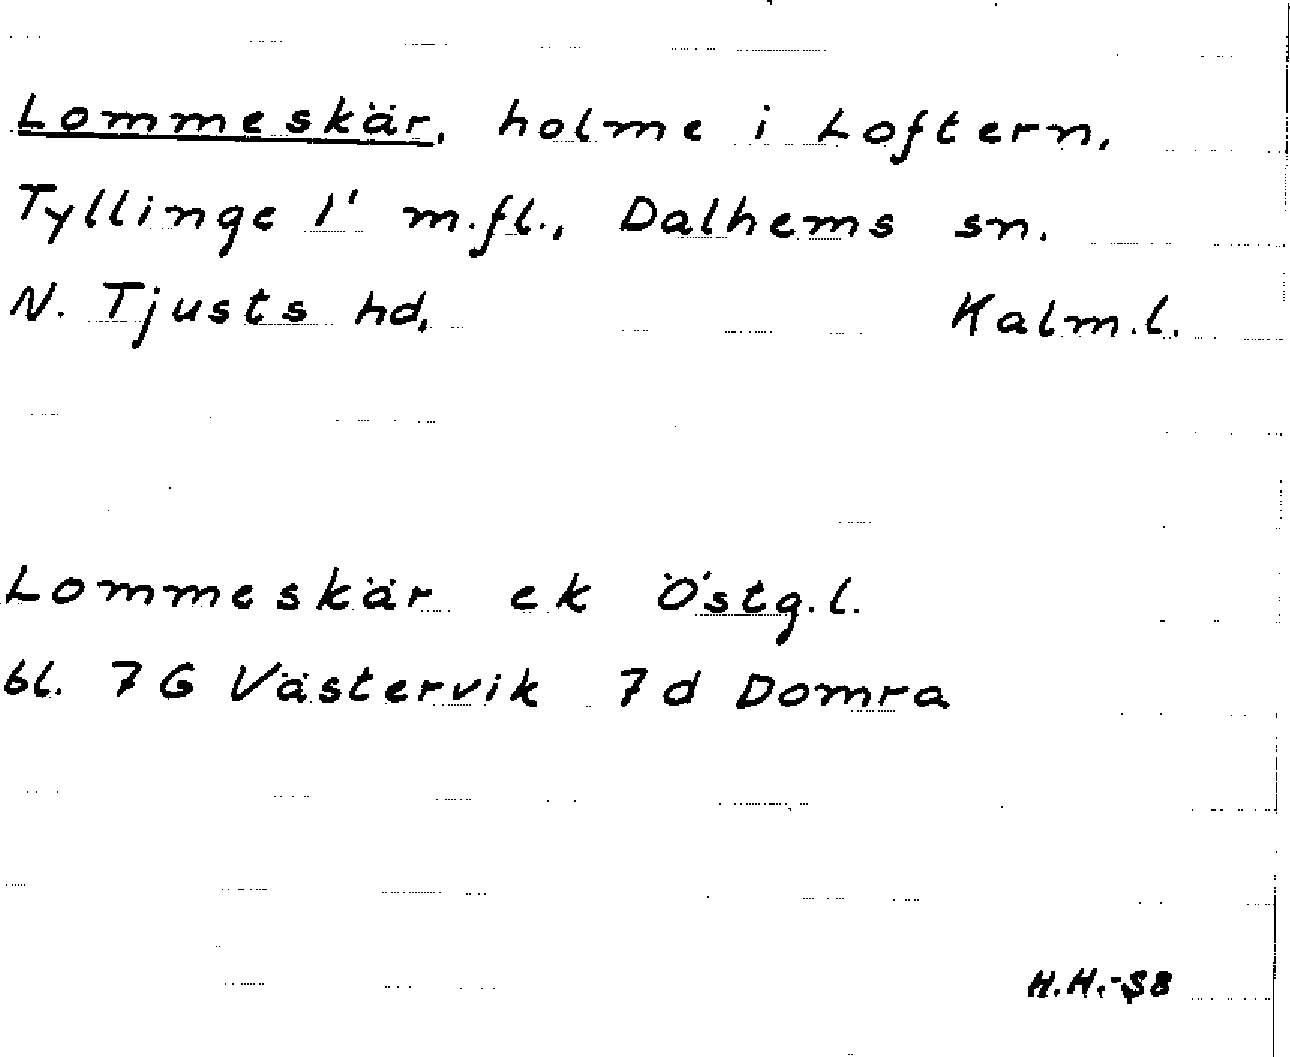 Lommeskär, holme i Loftern,
Tyllinge 1' m.fl., Dalhems sn.
N. Tjusts hd, Kalm.l.
Lommeskär ek Östg.l.
bl. 7G Västervik 7d Domra
H.H.-58